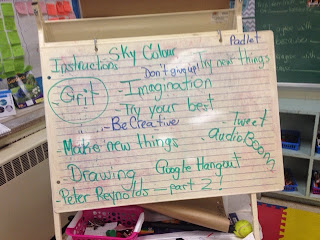 Sky Colour
Padlet
Instructions
Try new things
Don't give up!
Grit
- Imagination
- Try your best
- Be Creative
Tweet
Make new things
audioBoom
Drawing
Google Hangout
Peter Reynolds - part 2!